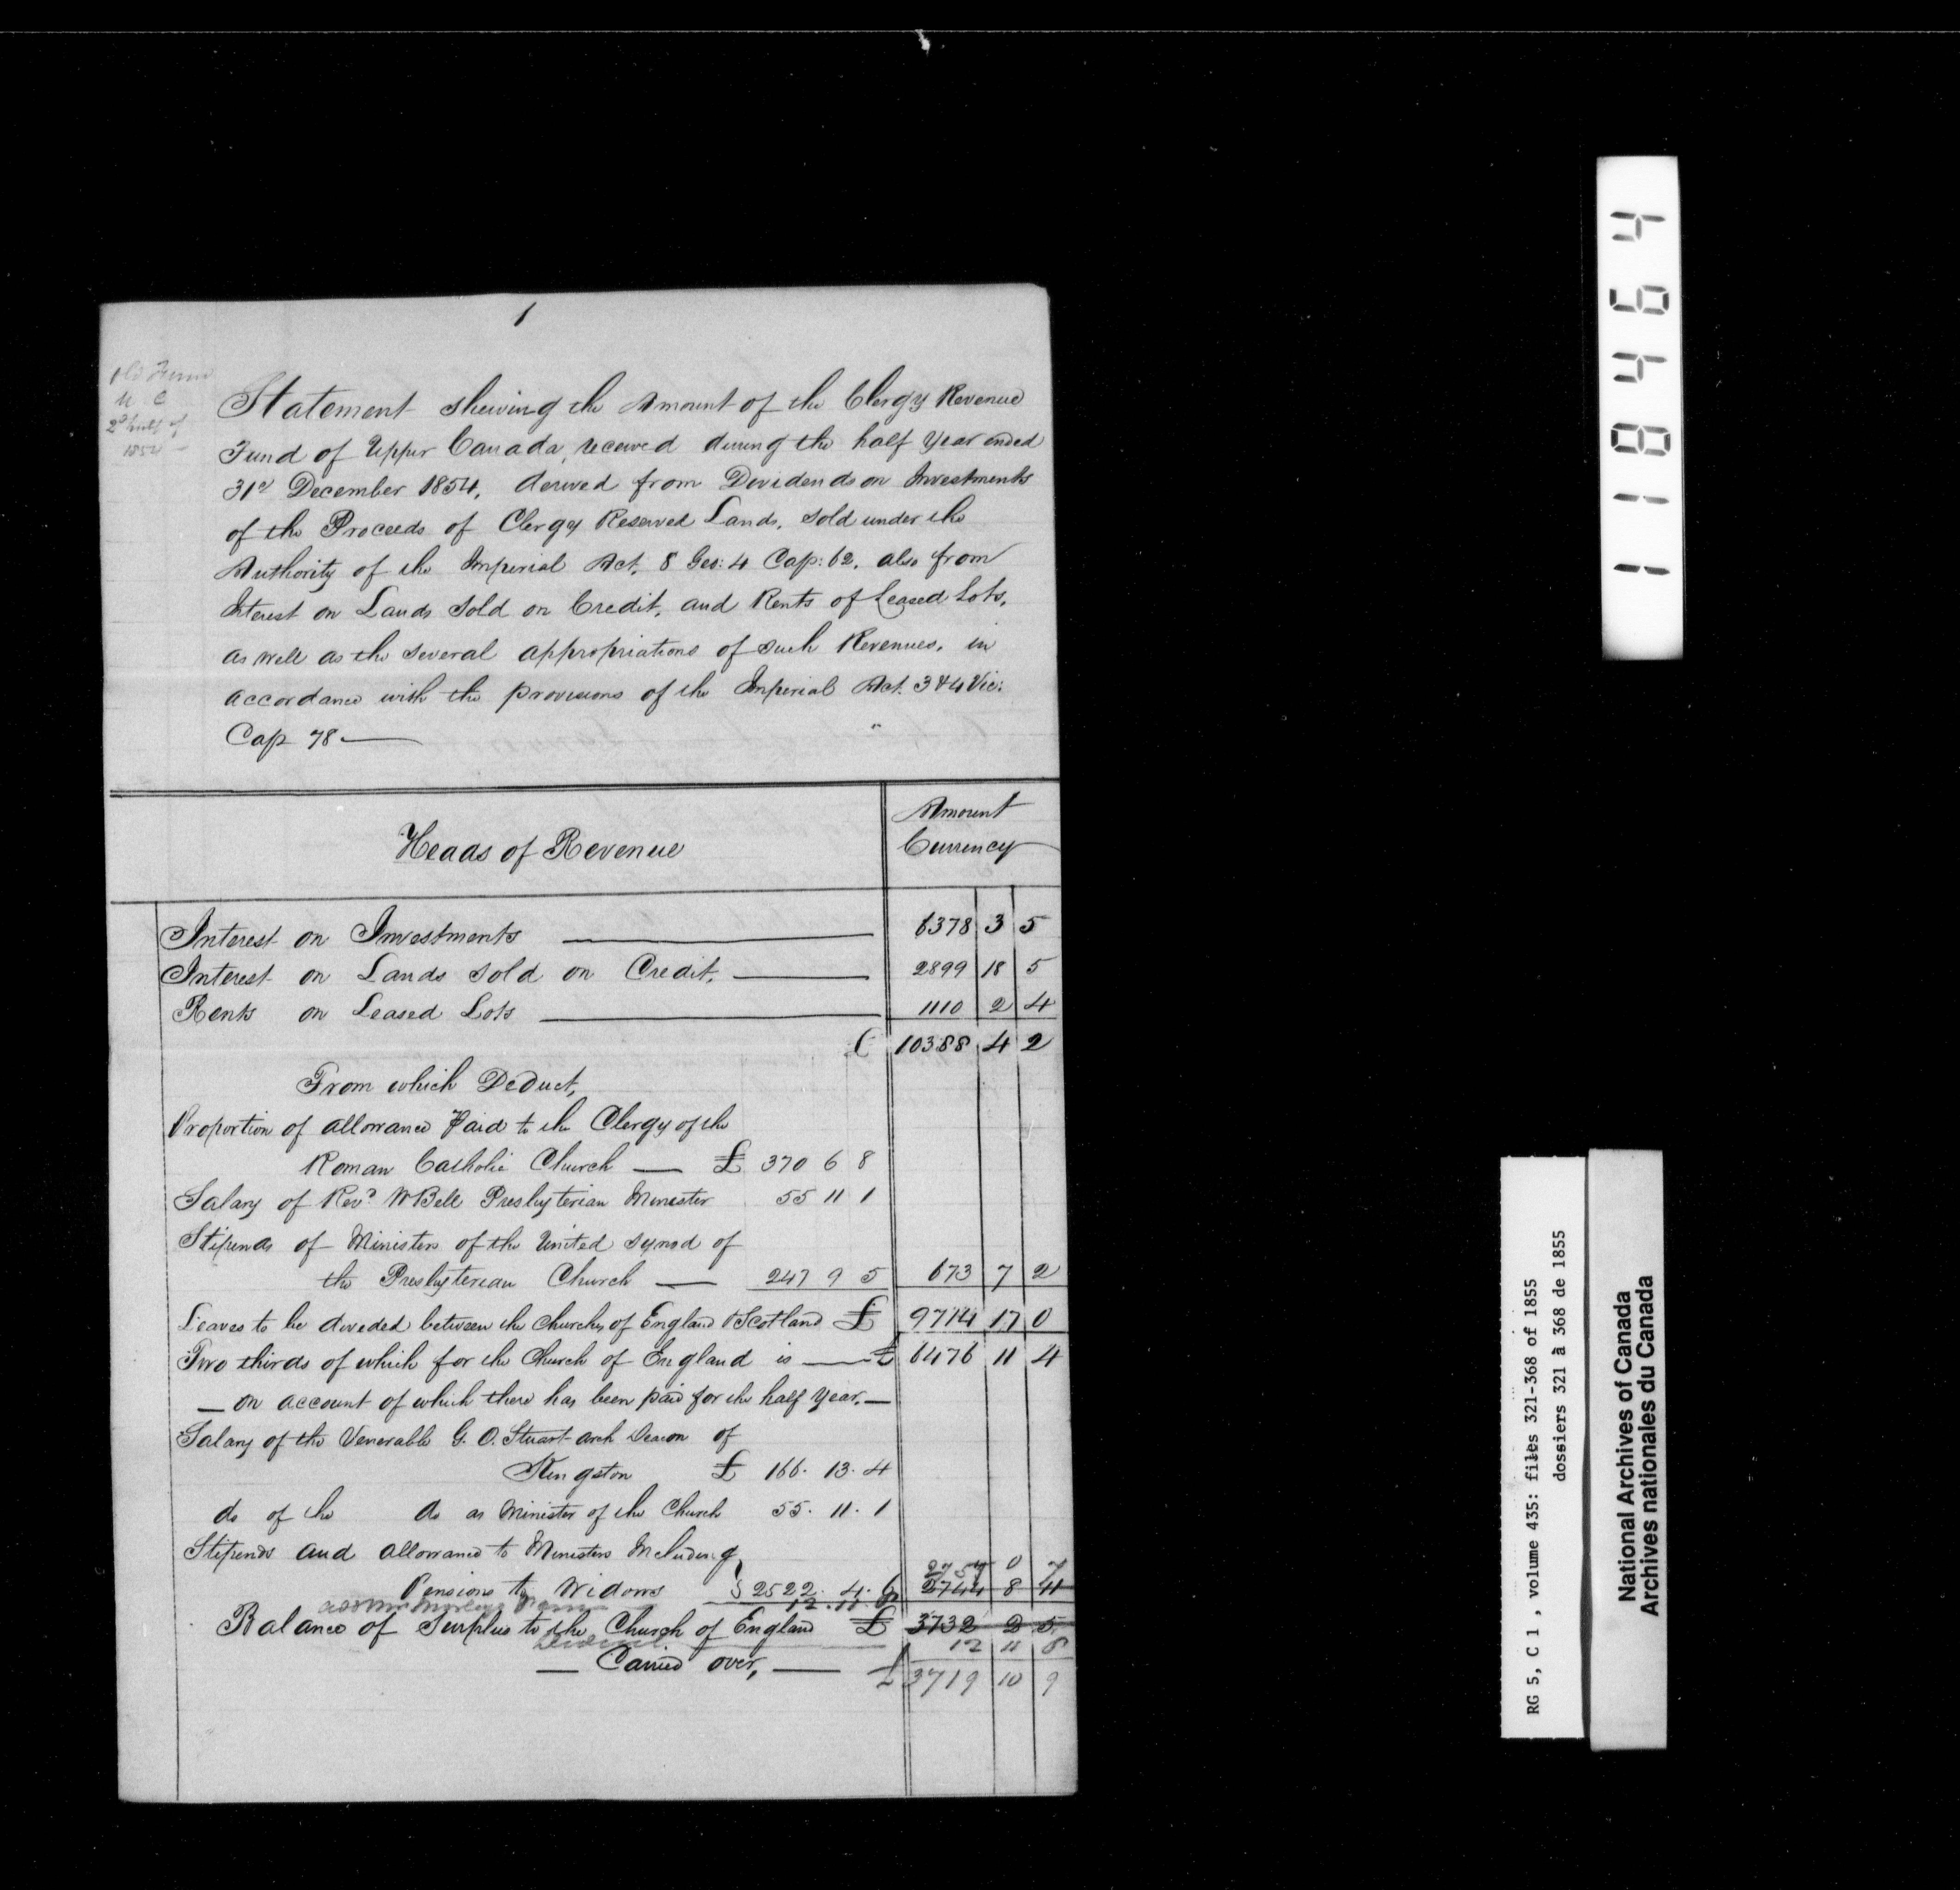 1
Old Fund
U C
2d half of
1854 -
Statement shewing the Amount of the Clergy Revenue
Fund of Upper Canada, received during the half Year ended
31st December 1854, derived from Dividends on Investments
of the Proceeds of Clergy Reserved Lands, sold under the
Authority of the Imperial Act, 8 Geo: 4 Cap: 62. also from
Interest on Lands sold on Credit, and Rents of Leased Lots,
as well as the several appropriations of such Revenues, in
accordance with the provisions of the Imperial Act. 3 & 4 Vic:
Cap 78 —
Heads of Revenue
Amount
Currency
Interest on Investments — 6378 3 5
Interest on Lands sold on Credit, — 2899 18 5
Rents on Leased Lots — 1110 2 4
£ 10388 4 2
From which Deduct,
Proportion of allowance Paid to the Clergy of the
Roman Catholic Church — £ 370 6 8
Salary of Revd W Bell Presbyterian Minister 55 11 1
Stipends of Ministers of the United Synod of
the Presbyterian Church — 247 9 5 673 7 2
Leaves to be divided between the Churches of England & Scotland £ 9714 17 0
Two thirds of which for the Church of England is — £ 6476 11 4
— on account of which there has been paid for the half Year. —
Salary of the Venerable G. O. Stuart Arch Deacon of
Kingston £ 166. 13. 4
do of the do as Minister of the Church 55. 11. 1
Stipends and allowance to Ministers Including
2757 0 7
Pensions to Widows 2522. 4. 6 2744 8 11
12. 11. 8
Balance of Surplus to the Church of England £ 3732 2 5
12 11 8
— Carried over, — £ 3719 10 9
118464
RG 5, C 1, volume 435: files 321-368 of 1855
dossiers 321 à 368 de 1855
National Archives of Canada
Archives nationales du Canada